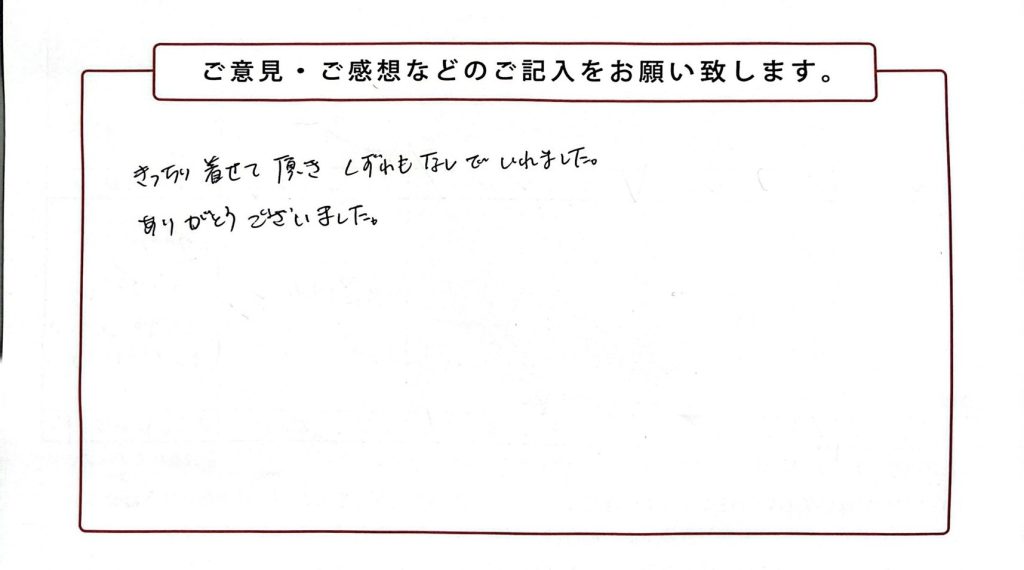 ご意見・ご感想などのご記入をお願い致します。
きっちり着せて頂き くずれもなしで いれました。
ありがとうございました。